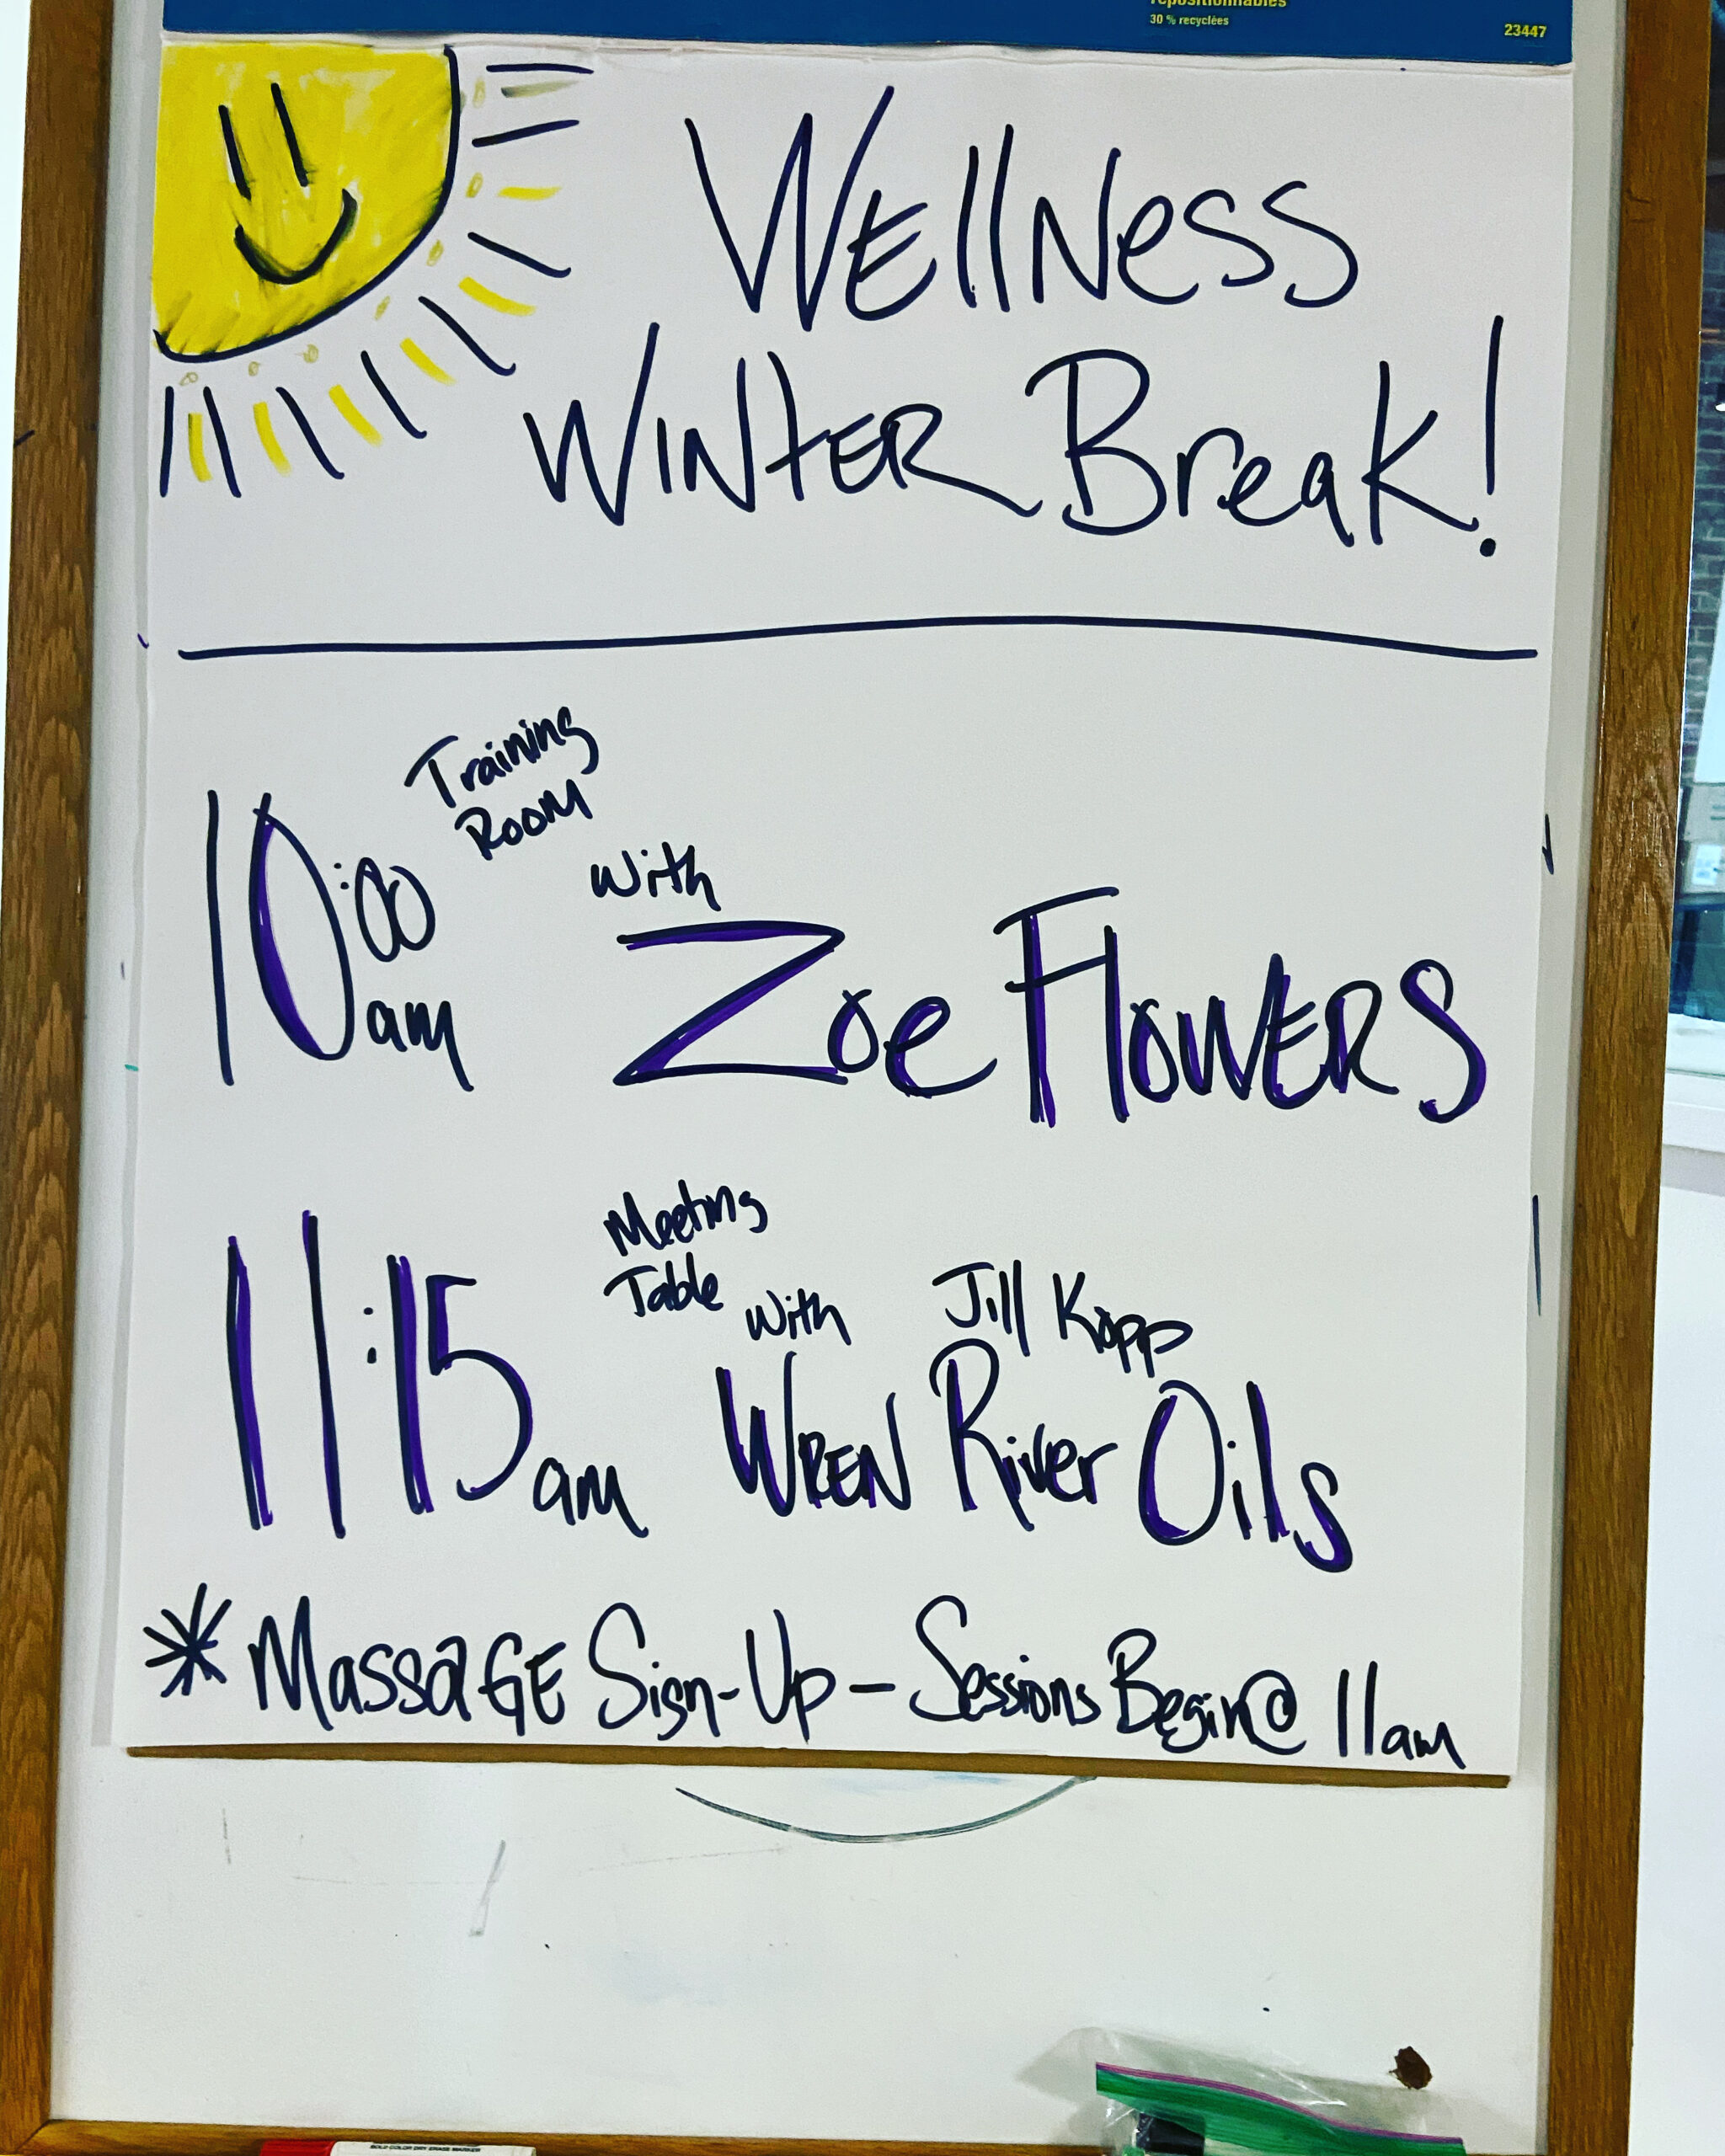 repositionnables
30 % recyclées
23447
Wellness
Winter Break!
Training
Room
10:00
am
with
Zoe Flowers
Meeting
Table
11:15 am
with Jill Kopp
Wren River Oils
* Massage Sign-Up - Sessions Begin @ 11am
BOLD COLOR DRY ERASE MARKER